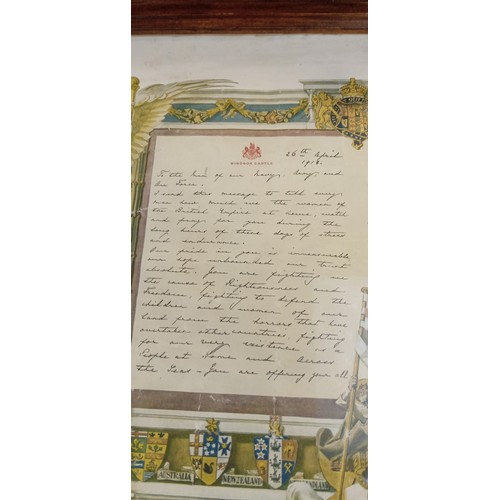 WINDSOR CASTLE
26th April
1918.
To the Men of our Navy, Army, and
Air Force.
I send this message to tell every
man how much we the women of
the British Empire at home, watch
and pray for you during the
long hours of these days of stress
and endurance.
Our pride in you is immeasurable,
our hope unbounded our trust
absolute. You are fighting in
the cause of Righteousness and
Freedom, fighting to defend the
children and women of our
land from the horrors that have
overtaken other countries, fighting
for our very existence as a
People at Home and Across
the Seas - You are offering your all
AUSTRALIA
NEW ZEALAND